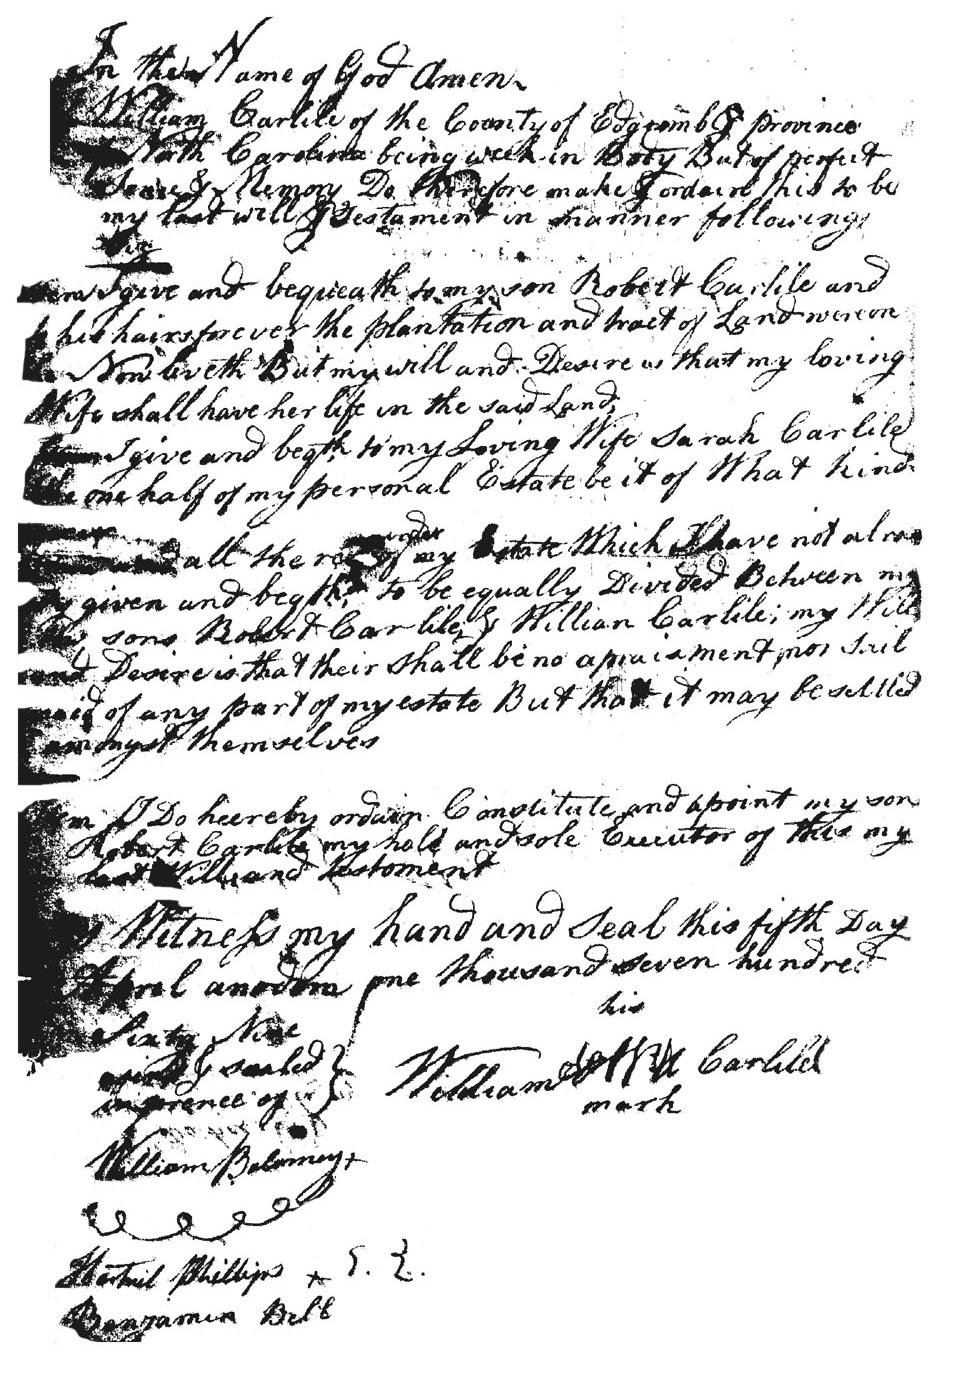 In the Name of God Amen
William Carlile of the County of Edgcomb & province
North Carolina being week in Body But of perfect
& Memory Do therefore make & ordain this to be
my last will & Testament in manner following
Viz
Item I give and bequeath to my son Robert Carlile and
his hairs forever the plantation and tract of Land wereon
Now liveth But my will and Desire is that my loving
Wife shall have her life in the said Land;
I give and beqth to my Loving Wife Sarah Carlile
one half of my personal Estate be it of What kind
all the remainder of my Estate Which I have not alrea
given and beqth to be equally Divided Between my
sons Robert Carlile & William Carlile; my Will
and Desire is that their shall be no apraisment nor Sail
maid of any part of my estate But that it may be settled
amongst themselves
Item I Do heereby ordain Constitute and apoint my son
Robert Carlile my hole and sole Executor of this my
last Will and testoment
Witness my hand and Seal this fifth Day
Aprol anodom one thousand seven hundred
his
Sixty Nine
& sealed
William Carlile
in prence of
mark
William
Phillips
Benjamin Bell